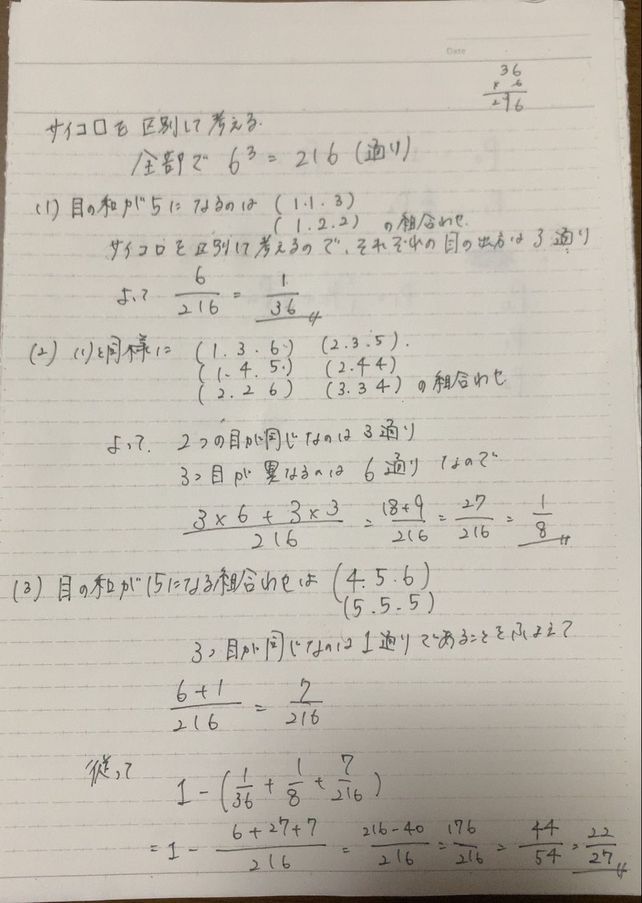 Date
36
× 6
296
サイコロを区別して考える.
全部で 6³ = 216 (通り)
(1) 目の和が5になるのは (1.1.3)
(1.2.2) の組合わせ
サイコロを区別して考えるので、それぞれの目の出方は3通り
よって 6/216 = 1/36
(2) (1)と同様に (1.3.6) (2.3.5).
(1.4.5) (2.4 4)
(2.2 6) (3.3 4) の組合わせ
よって. 2つの目が同じなのは 3通り
3つ目が異なるのは 6通り なので
3×6+3×3/216 = 18+9/216 = 27/216 = 1/8
(3) 目の和が15になる組合わせは (4.5.6)
(5.5.5)
3つ目が同じなのは1通りであることをふまえて
6+1/216 = 7/216
従って
1-(1/36+1/8+7/216)
=1- 6+27+7/216 = 216-40/216 = 176/216 = 44/54 = 22/27